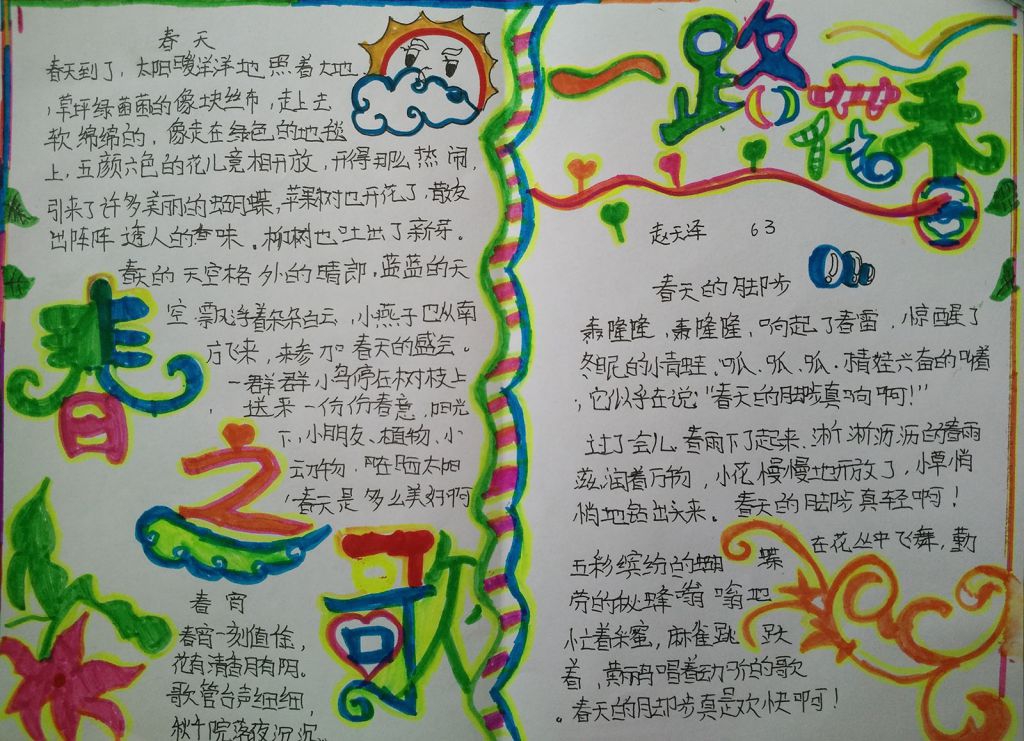 春天
春天到了，太阳暖洋洋地照着大地
，草坪绿茵茵的像块丝布，走上去
软绵绵的，像走在绿色的地毯
上，五颜六色的花儿竞相开放，开得那么热闹，
引来了许多美丽的蝴蝶，苹果树也开花了，散发
出阵阵透人的香味。柳树也吐出了新芽。
春天的天空格外的晴郎，蓝蓝的天
空飘浮着朵朵白云，小燕子也从南
方飞来，来参加春天的盛会。
一群群小鸟停在树枝上
，送来一份份春意，阳光
下，小朋友、植物、小
动物，在晒太阳
，春天是多么美好啊
春之歌
春宵
春宵一刻值金，
花有清香月有阴。
歌管台声细细，
秋千院落夜沉沉。
一路花香
赵天泽 63
春天的脚步
轰隆隆，轰隆隆，响起了春雷，惊醒了
冬眠的小青蛙、呱、呱、呱、青蛙兴奋的唱着
，它似乎在说："春天的脚步真响啊！"
过了会儿春雨下了起来、淅淅沥沥的春雨
滋润着万物，小花慢慢地开放了，小草悄
悄地钻出头来。春天的脚步真轻啊！
五彩缤纷的蝴蝶在花丛中飞舞，勤
劳的秘蜂嗡嗡地
忙着采蜜，麻雀跳跃
着，黄丽鸟唱着动听的歌
。春天的脚步真是欢快啊！